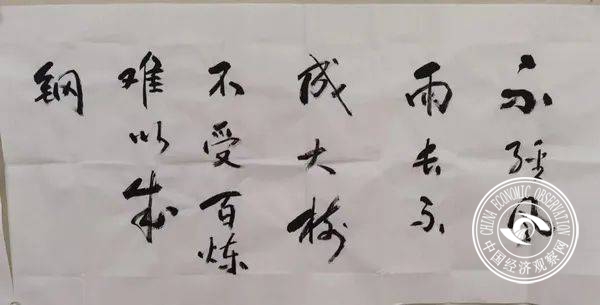 不經风
雨长不
成大树
不受百炼
难以成
钢
CHINA ECONOMIC OBSERVATION
中国经济观察网